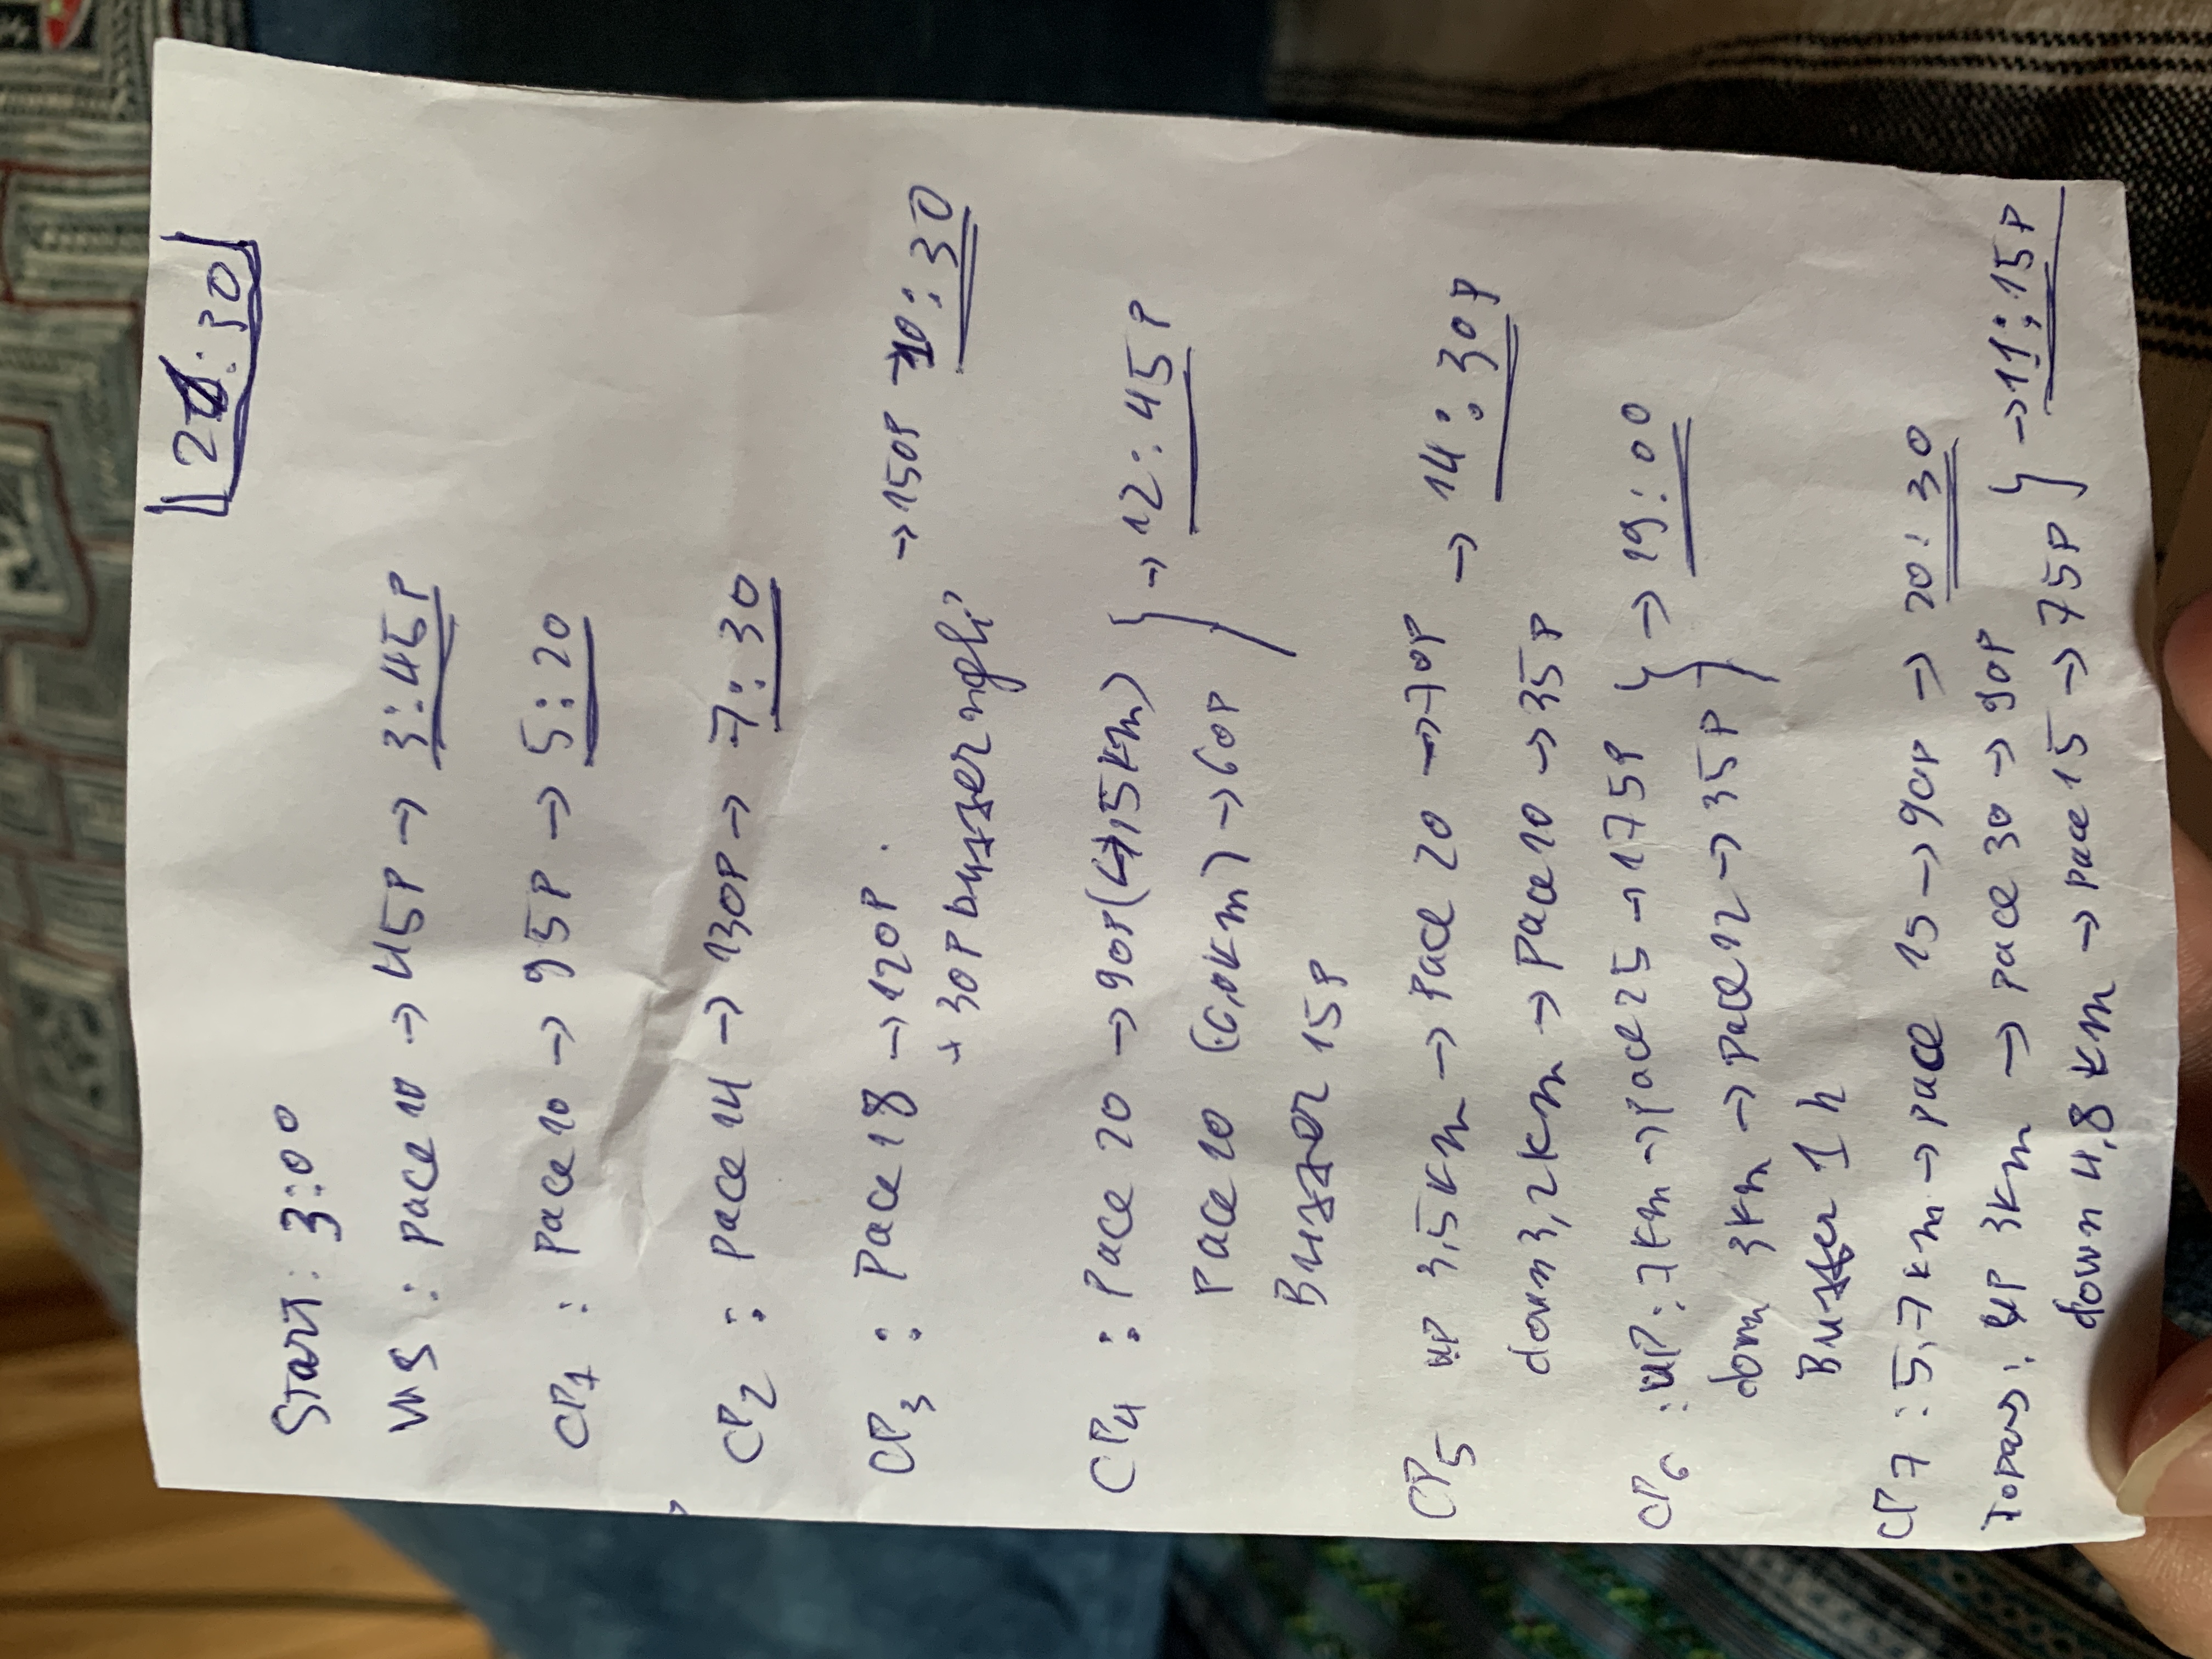 :30
Start: 3:00
WS : pace 10 → 45P → 3:45P
CP1 : pace 10 → 95P → 5:20
CP2 : pace 14 → 130P → 7:30
CP3 : Pace 18 → 120P → 150P → 10:30
+ 30P buffer nghỉ
CP4 : Pace 20 → 90P (4,5km)
→ 12:45P
Pace 10 (6,0km) → 60P
Buffer 15P
CP5 up 3,5km → Pace 20 → 70P
→ 14:30P
down 3,2km → Pace 10 → 35P
CP6 : UP : 7km → pace 25 → 175P → 19:00
down 3km → pace 12 → 35P
Buffer 1h
CP7 : 5,7km → pace 15 → 90P → 20:30
Topas : UP 3km → pace 30 → 90P
→ 11:15P
down 4,8km → pace 15 → 75P